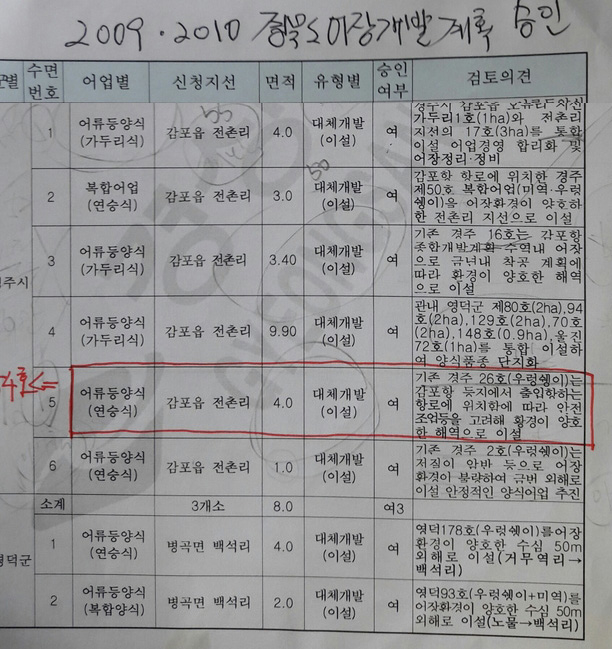 2009.2010 어장개발계획 승인
군별 수면번호 어업별 신청지선 면적 유형별 승인여부 검토의견
1 어류등양식(가두리식) 감포읍 전촌리 4.0 대체개발(이설) 여
가두리1호(1ha)와 전촌리
지선의 17호(3ha)를 통합
이설 어업경영 합리화 및
어장정리·정비
2 복합어업(연승식) 감포읍 전촌리 3.0 대체개발(이설) 여
감포항 항로에 위치한 경주
제50호 복합어업(미역·우렁
쉥이)을 어장환경이 양호하
한 전촌리 지선으로 이설
3 어류등양식(가두리식) 감포읍 전촌리 3.40 대체개발(이설) 여
기존 경주 16호는 감포항
종합개발계획 수역내 어장
으로 금년내 착공 계획에
따라 환경이 양호한 해역
으로 이설
경주시
4 어류등양식(가두리식) 감포읍 전촌리 9.90 대체개발(이설) 여
관내 영덕군 제80호(2ha),94
호(2ha),129호(2ha),70호
(2ha),148호(0.9ha),울진
72호(1ha)를 통합 이설하
여 양식품종 단지화
5 어류등양식(연승식) 감포읍 전촌리 4.0 대체개발(이설) 여
기존 경주 26호(우렁쉥이)는
감포항 등지에서 출입항하는
항로에 위치함에 따라 안전
조업등을 고려해 환경이 양호
한 해역으로 이설
6 어류등양식(연승식) 감포읍 전촌리 1.0 대체개발(이설) 여
기존 경주 2호(우렁쉥이)는
저질이 암반 등으로 어장
환경이 불량하여 금번 외해로
이설 안정적인 양식어업 추진
소계 3개소 8.0 여3
영덕군
1 어류등양식(연승식) 병곡면 백석리 4.0 대체개발(이설) 여
영덕178호(우렁쉥이)를어장
환경이 양호한 수심 50m
외해로 이설(거무역리→
백석리)
2 어류등양식(복합양식) 병곡면 백석리 2.0 대체개발(이설) 여
영덕93호(우렁쉥이+미역)를
어장환경이 양호한 수심 50m
외해로 이설(노물→백석리)